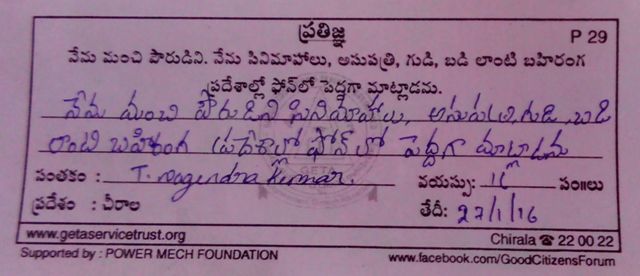 ప్రతిజ్ఞ P 29
నేను మంచి పౌరుడిని. నేను సినిమాహాలు, ఆసుపత్రి, గుడి, బడి లాంటి బహిరంగ
ప్రదేశాల్లో ఫోన్‌లో పెద్దగా మాట్లాడను.
నేను మంచి పౌరుడిని సినిమాహాలు, ఆసుపత్రి, గుడి, బడి
లాంటి బహిరంగ ప్రదేశాల్లో ఫోన్ లో పెద్దగా మాట్లాడను
సంతకం : T. nagendra kumar. వయస్సు: 16 సం॥లు
ప్రదేశం : చీరాల తేదీ: 27/1/16
www.getaservicetrust.org Chirala ☎ 22 00 22
Supported by : POWER MECH FOUNDATION www.facebook.com/GoodCitizensForum